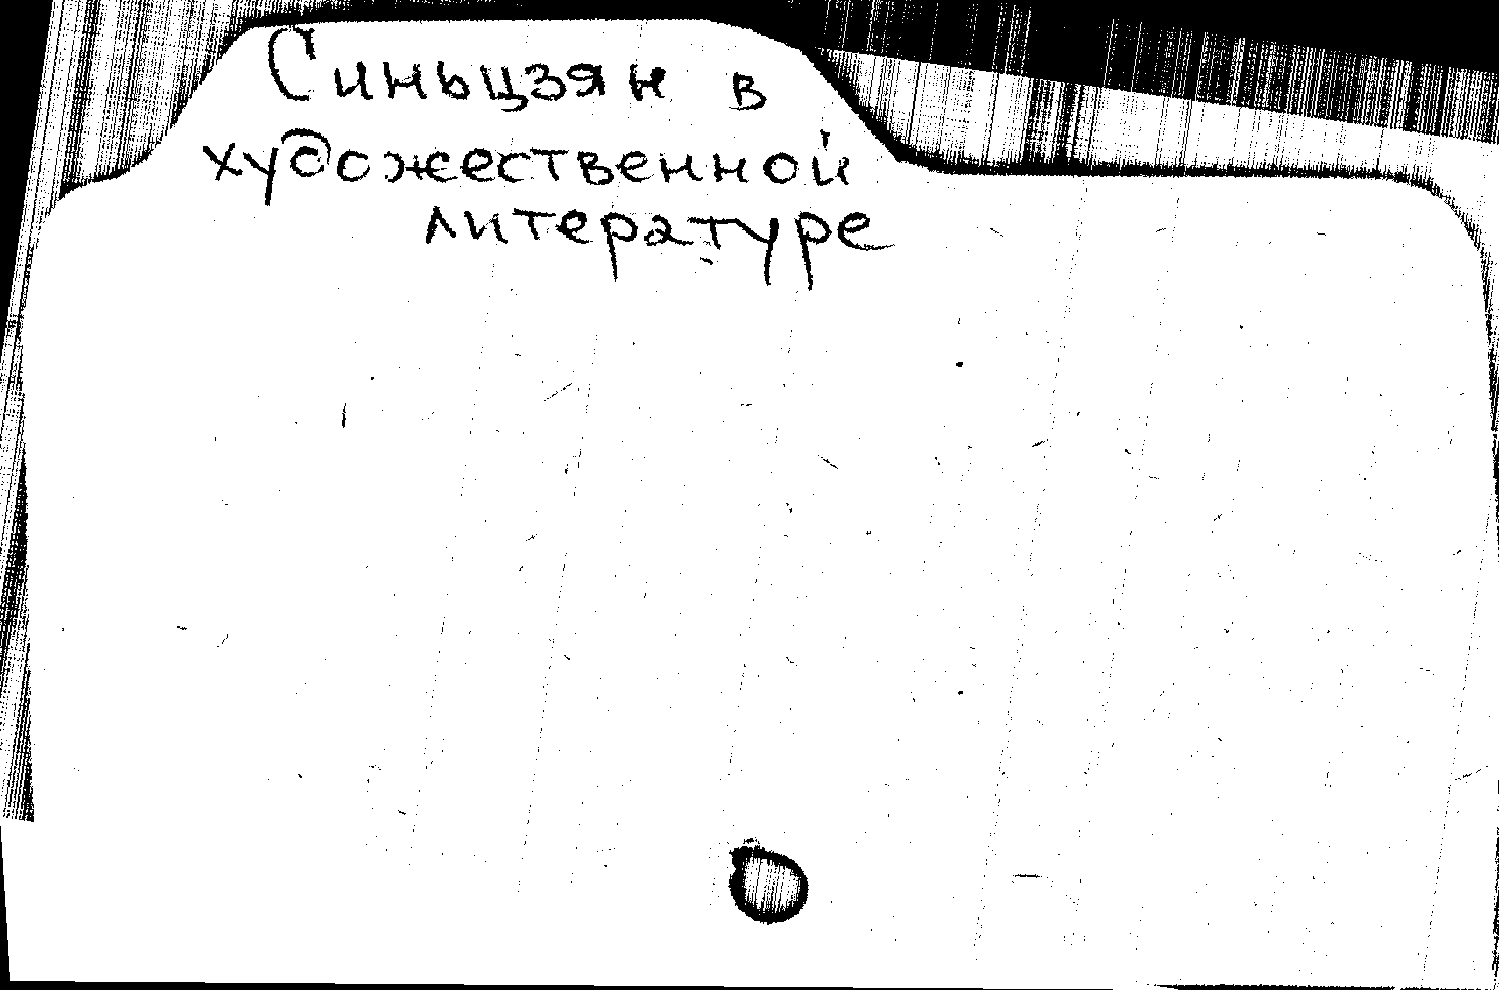 Синьцзян в
художественной
литературе